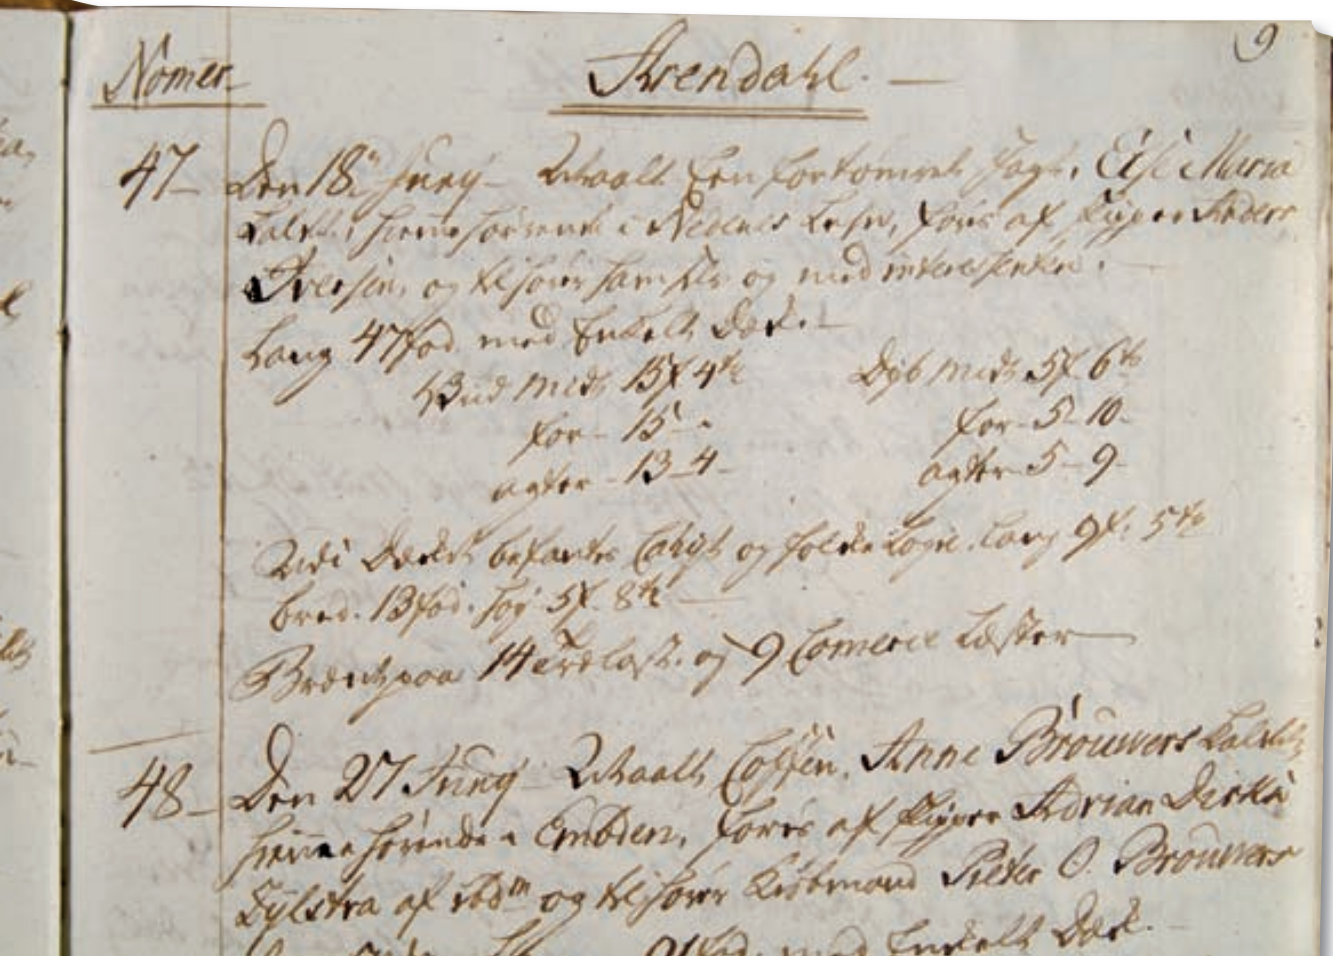 9
Nomer Arendahl.
47 Den 18 Juny Udmaalt Een fortømret Jagt, Else Maria
kaldet, hiemehørende i Nedenes Lehn, føres af Skipper Anders
Iversen, og tilhører ham selv og med interessentere.
Lang 47 fod med Enkelt Dæk.
Bred Midt 15 f 4 to Dyb Midt 5 f 6 to
for 15 - for 5 - 10
agter 13 - 4 agter 5 - 9
Udi Dækket befantes Cahyt og folke Logie. lang 9 f. 5 to
bred. 13 fod. høy 5 f. 8 to
Brændt paa 14 Trælast. og 9 Comerce Læster
48 Den 27 Juny Udmaalt Anne Brouwers kaldet
hiemehørende i Embden, føres af Skipper Adrian Dirks
Zylstra af ibdm og tilhører Kiøbmand Pieter O. Brouwers
fod. med Enkelt Dæk.